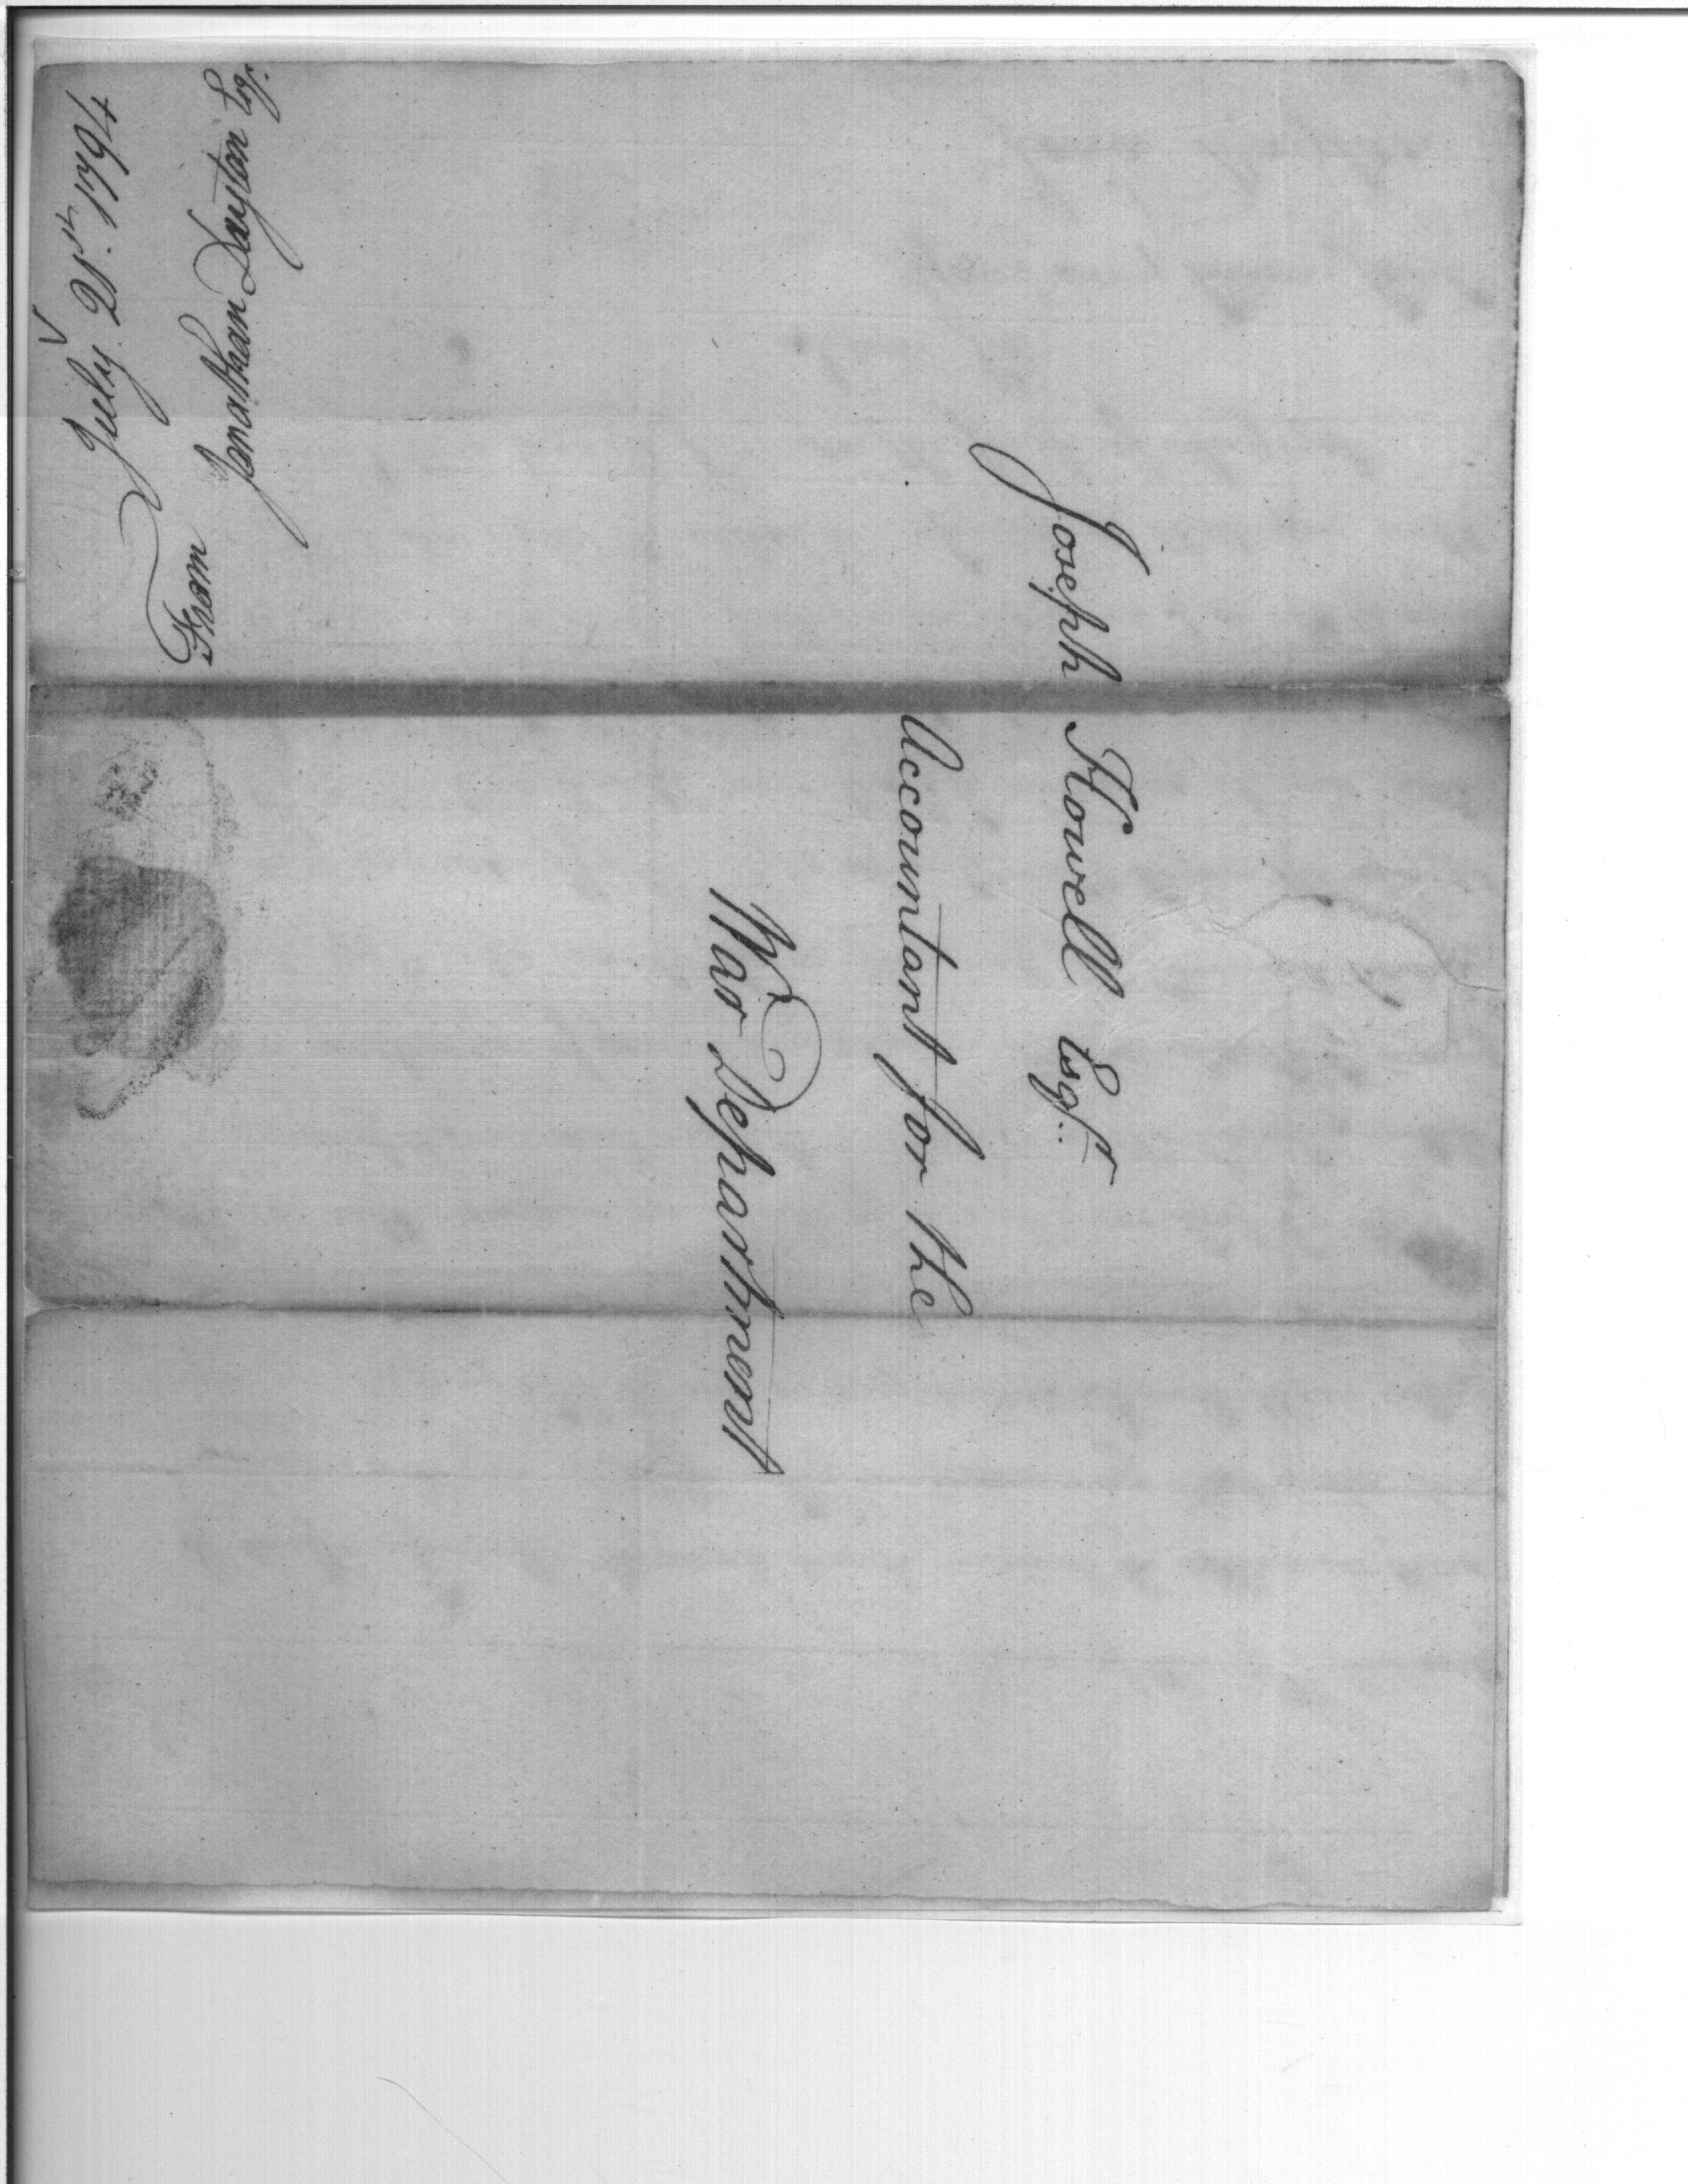 Joseph Howell Esqr.
Accountant for the
War Department
July 21st. 1794
From
Jonathan Dayton Esqr.